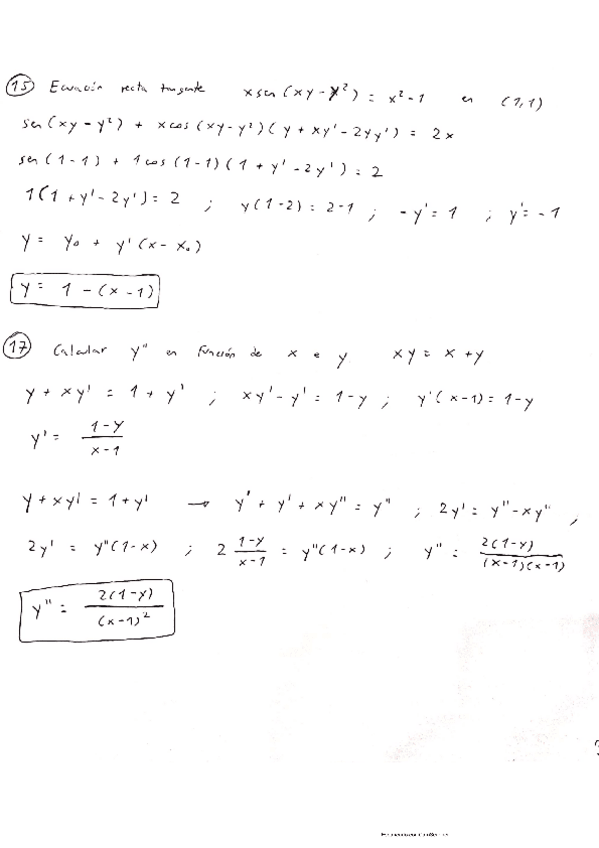 15 Ecuación recta tangente x sen (xy - y²) = x² - 1 en (1,1)
sen (xy - y²) + x cos (xy - y²) ( y + xy' - 2yy') = 2x
sen (1 - 1) + 1 cos (1 - 1) ( 1 + y' - 2y') = 2
1 (1 + y' - 2y') = 2 ; y (1 - 2) = 2 - 1 ; - y' = 1 ; y' = - 1
y = y₀ + y' (x - x₀)
y = 1 - (x - 1)
17 Calcular y'' en función de x e y xy = x + y
y + xy' = 1 + y' ; xy' - y' = 1 - y ; y' (x - 1) = 1 - y
y' = (1 - y) / (x - 1)
y + xy' = 1 + y' → y' + y' + xy'' = y'' ; 2y' = y'' - xy'' ;
2y' = y'' (1 - x) ; 2 (1 - y) / (x - 1) = y'' (1 - x) ; y'' = 2(1 - y) / (x - 1)(x - 1)
y'' = 2(1 - y) / (x - 1)²